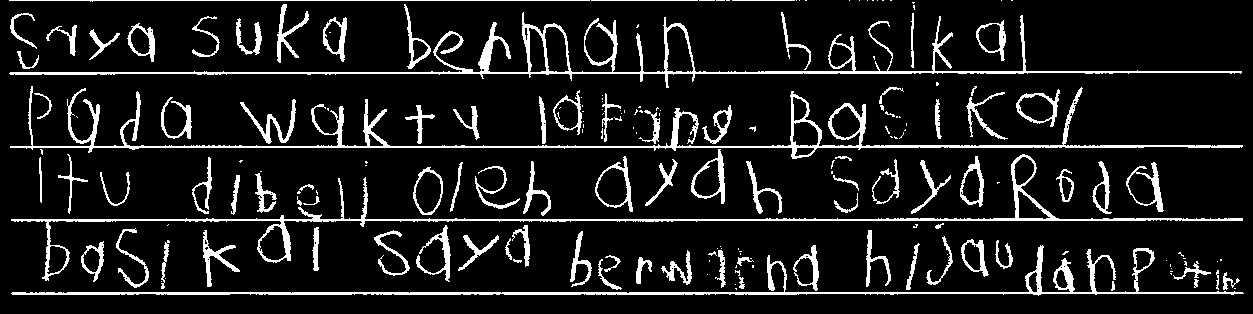 Saya suka bermain basikal
Pada waktu latang. Basikal
itu dibeli oleh ayah Saya. Roda
basikal saya berwarna hijau dan Putih